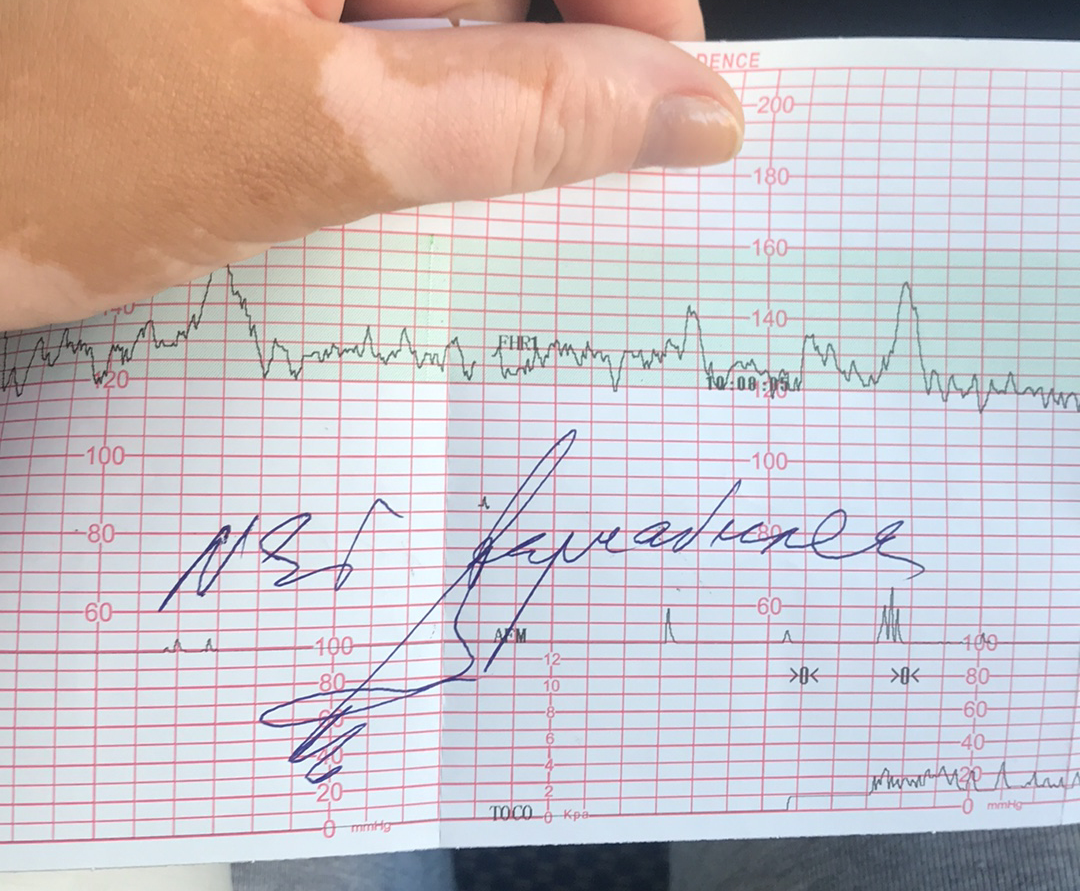 DENCE
200
180
160
140 140
FHR1
120 10:00:05 120
100 100
NST
80 80
60 60
AFM
100 100
12
>0< >0<
80 10 80
8 60
6
40 4 40
20 2 20
TOCO 0 Kpa 0 mmHg
0 mmHg